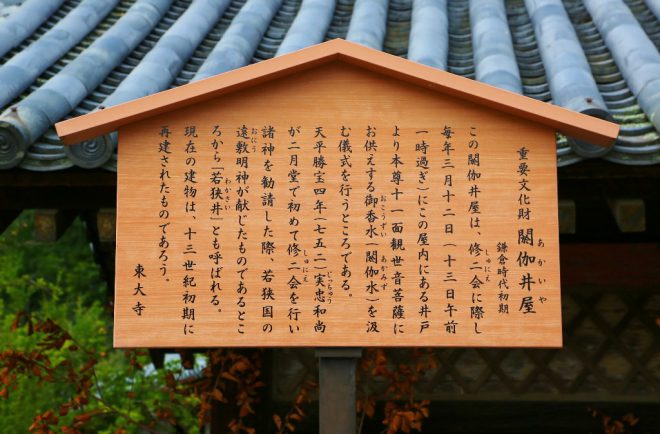 重要文化財 閼伽井屋
あかいや
鎌倉時代初期
この閼伽井屋は、修二会に際し
しゅにえ
毎年三月十二日(十三日午前
一時過ぎ)にこの屋内にある井戸
より本尊十一面観世音菩薩に
お供えする御香水(閼伽水)を汲
おこうずい あかみず
む儀式を行うところである。
天平勝宝四年(七五二)実忠和尚
じっちゅう
が二月堂で初めて修二会を行い
しゅにえ
諸神を勧請した際、若狭国の
遠敷明神が献じたものであるとこ
おにう
ろから「若狭井」とも呼ばれる。
わかさい
現在の建物は、十三世紀初期に
再建されたものであろう。
東大寺